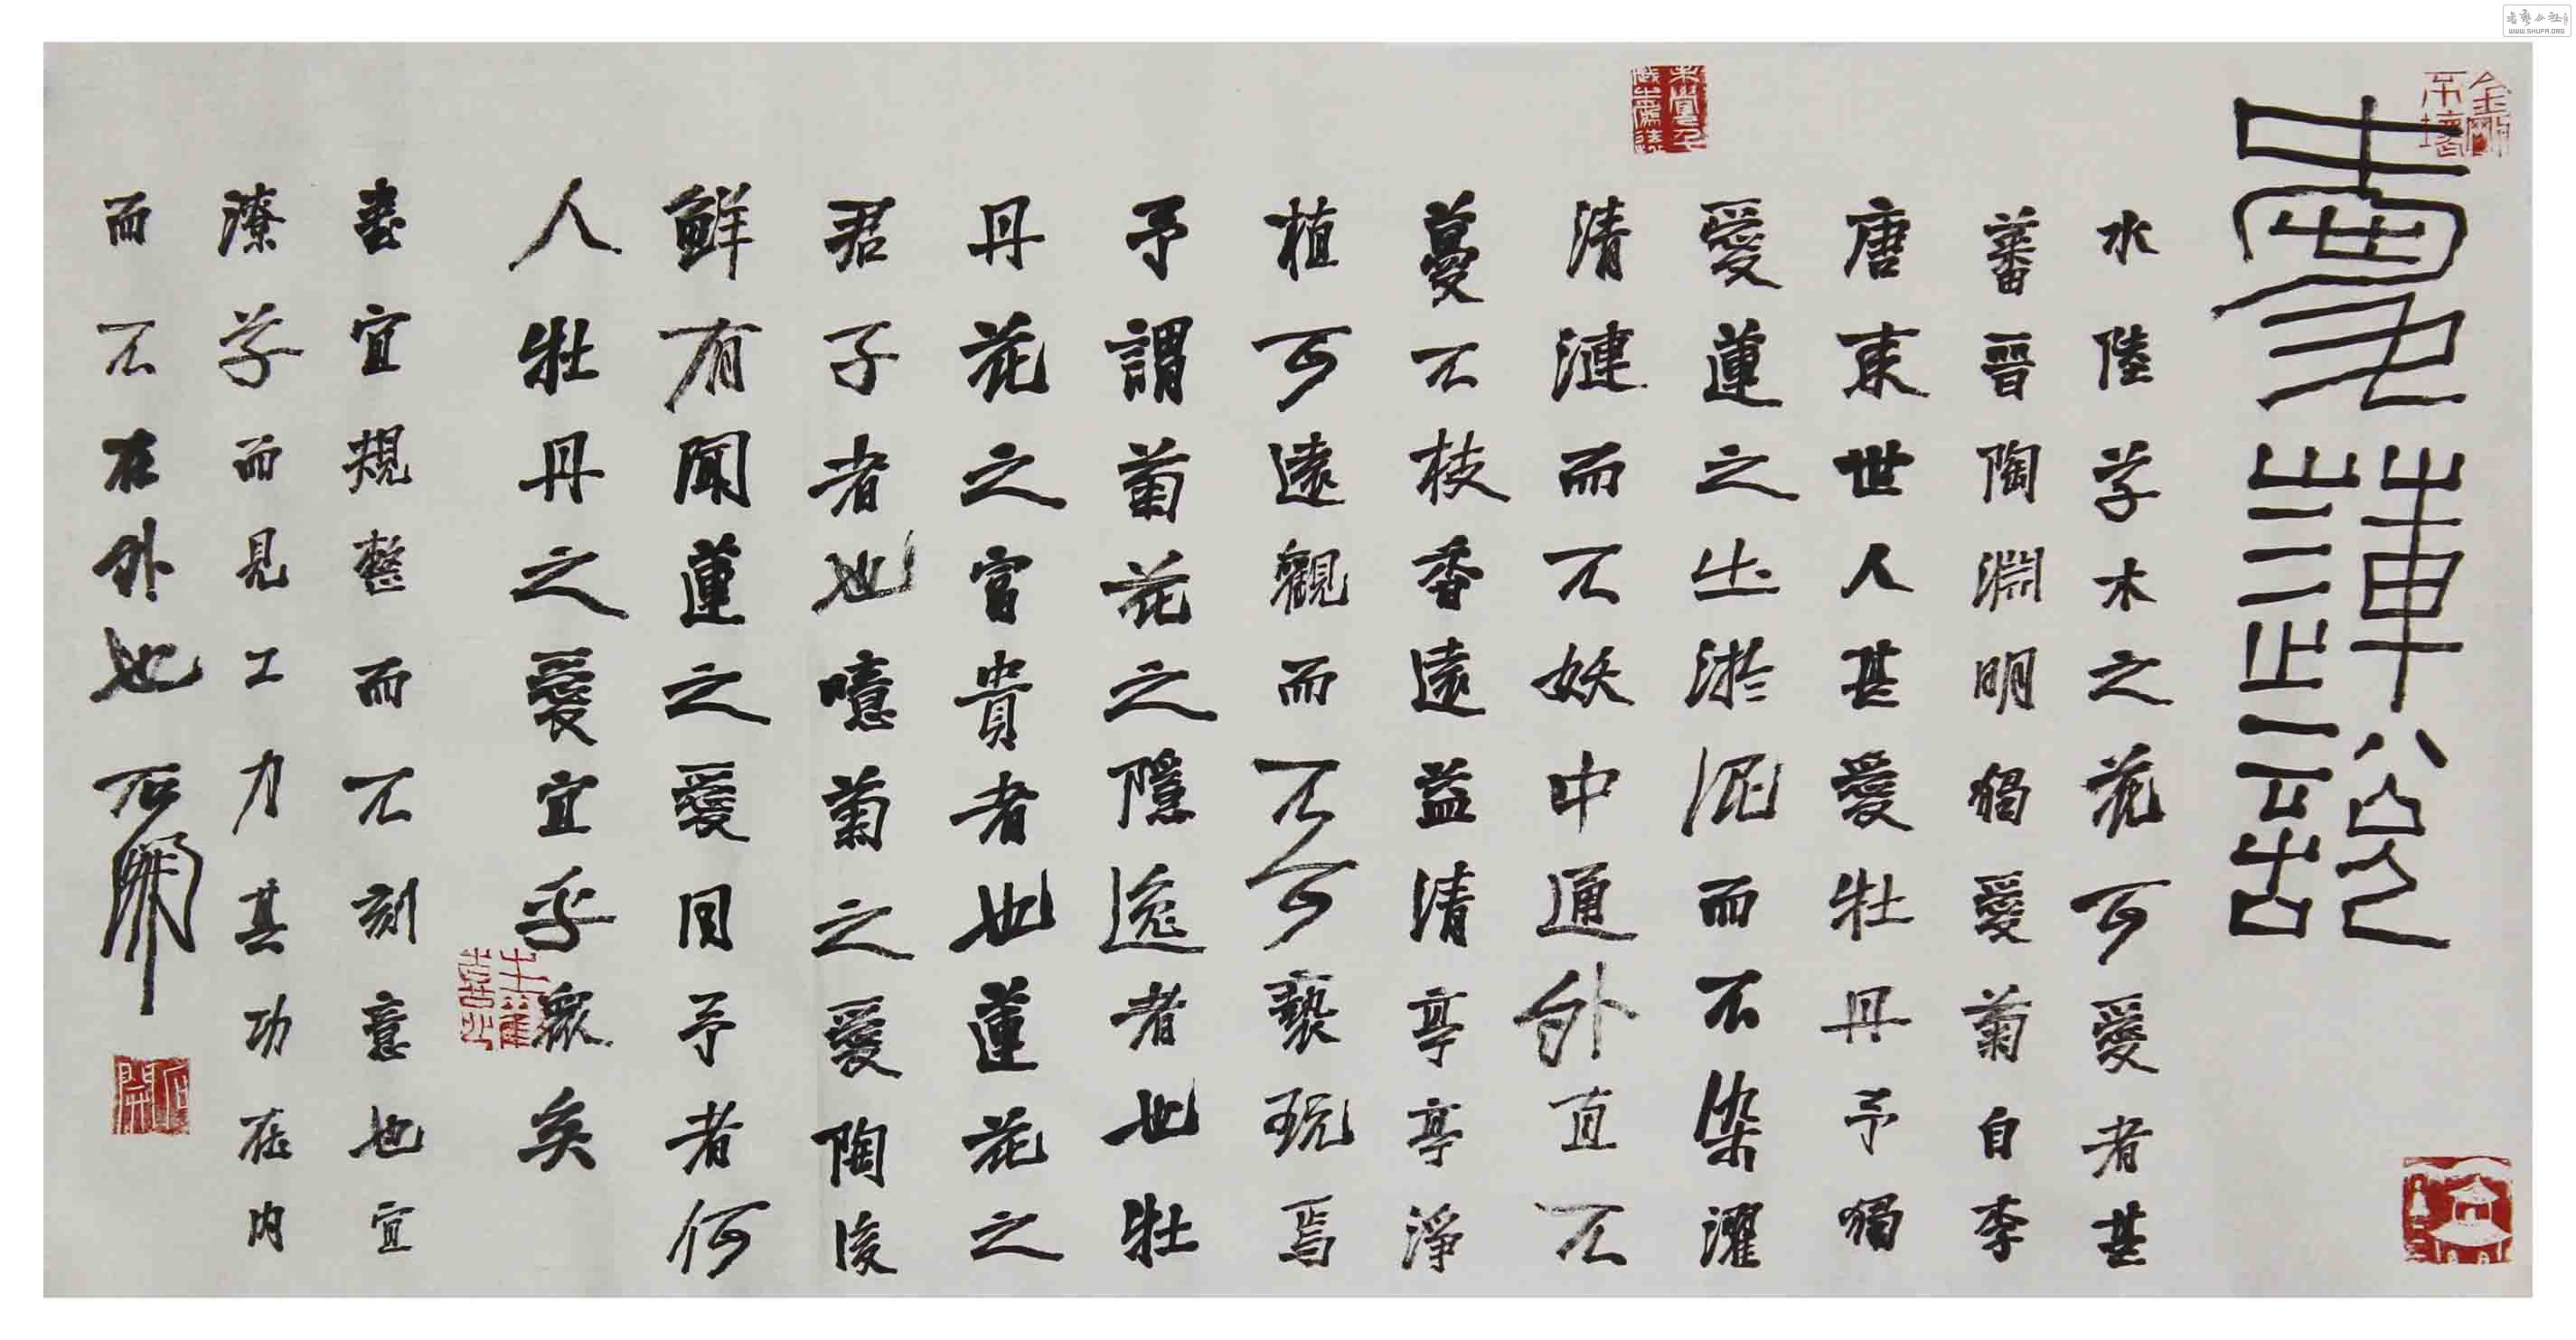 書藝公社
WWW.SHUFA.ORG
金剛不壞
愛蓮說
水陸草木之花可愛者甚
蕃晉陶淵明獨愛菊自李
唐來世人甚愛牡丹予獨
愛蓮之出淤泥而不染濯
清漣而不妖中通外直不
蔓不枝香遠益清亭亭淨
植可遠觀而不可褻玩焉
予謂菊花之隱逸者也牡
丹花之富貴者也蓮花之
君子者也噫菊之愛陶後
鮮有聞蓮之愛同予者何
人牡丹之愛宜乎眾矣
書宜規整而不刻意也宜
潦草而見工力其功在內
而不在外也石開
石開